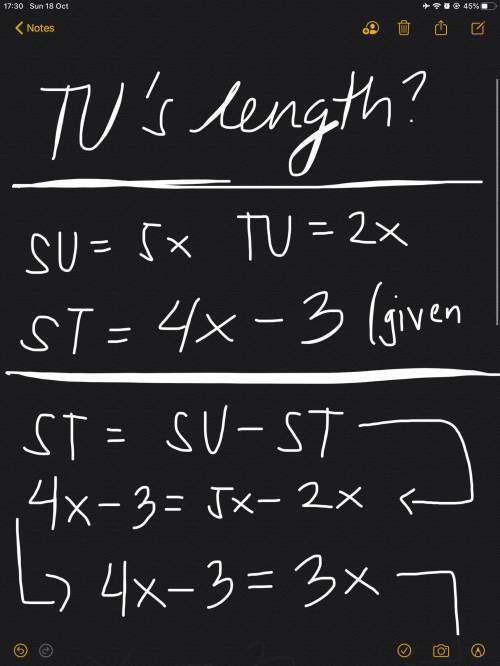 17:30 Sun 18 Oct 45%
Notes
TU's length?
SU = 5x TU = 2x
ST = 4x - 3 (given
ST = SU - ST
4x - 3 = 5x - 2x
4x - 3 = 3x